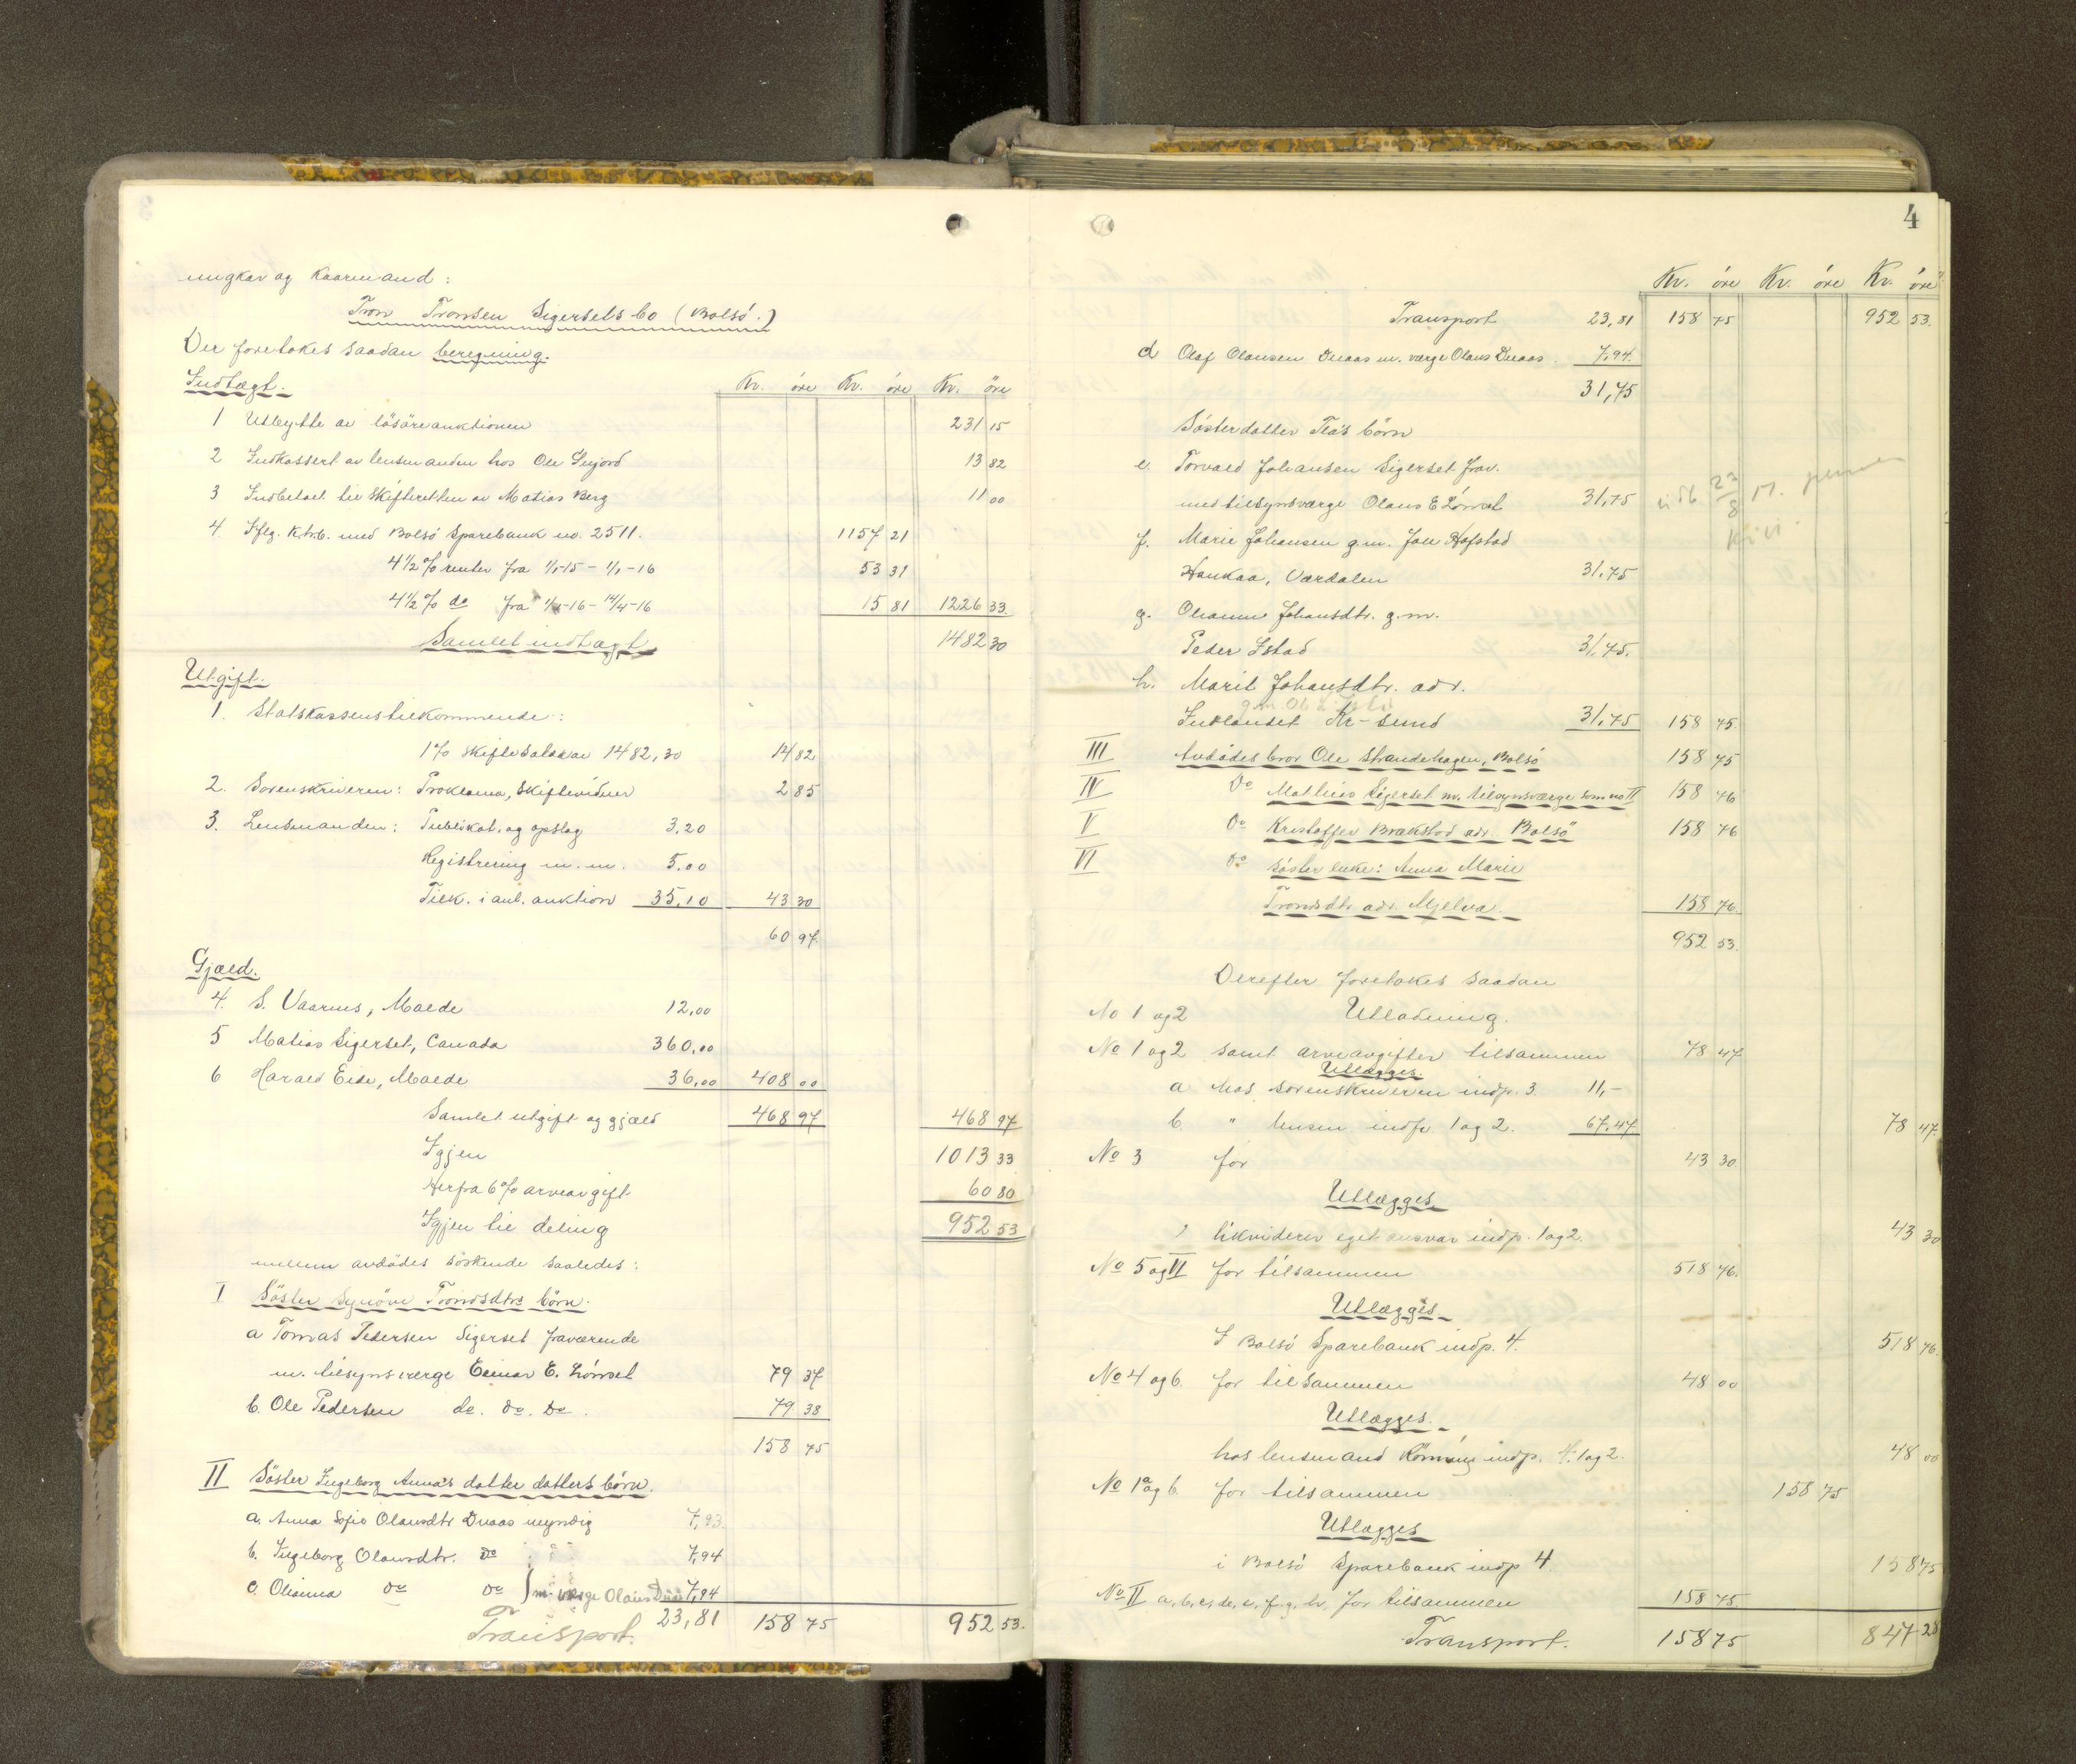 ungkar og kaarmand:
Tron Tronsen Sigersets bo (Bolsö.)
Der foretokes saadan beregning.
Indtægt.
Kr. öre Kr. öre Kr. öre
1 Utbytte av lösöreauktionen 231 15
2 Indkassert av lensmanden hos Ole 13 82
3 Indbetalt til skifteretten av Matias Berg 11 00
4 Iflg. K.tr.b. med Bolsö Sparebank no. 2511. 1157 21
4 1/2 % renter fra 1/1-15 - 1/1-16 53 31
4 1/2 % do fra 1/1-16 - 14/4-16 15 81 1226 33.
Samlet indtægt 1482 30
Utgift.
1. Statskassens tilkommende:
1% skiftesal av 1482,30 14 82
2. Sorenskriveren: Proklama, Skiftevidner 2 85
3. Lensmanden: Publikat. og opslag 3,20
Registrering m. m. 5,00
Tilk. i anl. auktion 35,10 43 30
60 97
Gjæld.
4. S. Vaarnes, Molde 12,00
5 Matias Sigerset, Canada 360,00
6 Harald Eide, Molde 36,00 408 00
Samlet utgift og gjæld 468 97 468 97
Igjen 1013 33
Herfra 6% arveavgift 60 80
Igjen til deling 952 53
mellem avdödes söskende saaledes:
I Söster Synöve Trondsdtrs börn.
a Tomas Pedersen Sigerset fraværende
m. tilsynsverge Einar E. Lönset 79 37
b. Ole Pedersen do. do. do. 79 38
158 75
II Söster Ingeborg Anna's datter datters börn.
a. Anna Sofie Olausdtr Duaas myndig 7,93
b. Ingeborg Olausdtr. do 7,94
c. Olianna do do m verge Olaus Duaas 7,94
Transport. 23,81 158 75 952 53.
4
Kr. öre Kr. öre Kr. öre
Transport 23,81 158 75 952 53.
d Olaf Olausen Duaas m. værge Olaus Duaas 7,94.
31,75
Sösterdatter Tea's börn
e. Torvald Johansen Sigerset frav.
med tilsynsværge Olaus E Lönset 31,75
f. Marie Johansen g.m. Jon Hofstad
Haukaa, Værdalen 31,75
g. Johansdtr. g.m.
Peder Istad 31,75.
h. Marit Johansdtr. adr.
Indlandet Kr-sund 31,75 158 75.
III Avdödes bror Ole Strandehagen, Bolsö 158 75
IV Do Mathias Sigerset m. tilsynsværge som no II 158 76
V Do Kristoffer Brækstad adr. Bolsö 158 76
VI do söster enke: Anna Marie
Trondsdtr adr. Mjelva. 158 76.
952 53.
Derefter foretokes saadan
No 1 og 2 Utlodning.
No 1 og 2 samt arveavgiften tilsammen 78 47
Utlægges.
a Hos sorenskriveren indp. 3. 11,-
b. " lensm indp 1 og 2. 67,47 78 47.
No 3 for 43 30
Utlægges
likviderer eget ansvar indp. 1 og 2. 43 30
No 5 og VI for tilsammen 518 76.
Utlægges
I Bolsö Sparebank indp. 4. 518 76.
No 4 og 6. for tilsammen 48 00
Utlægges.
hos lensmand indp. 1 og 2. 48 00
No I a og b. for tilsammen 158 75
Utlægges
i Bolsö Sparebank indp 4. 158 75
No II a, b, c, d, e, f, g, h, for tilsammen 158 75.
Transport. 158 75 847 28